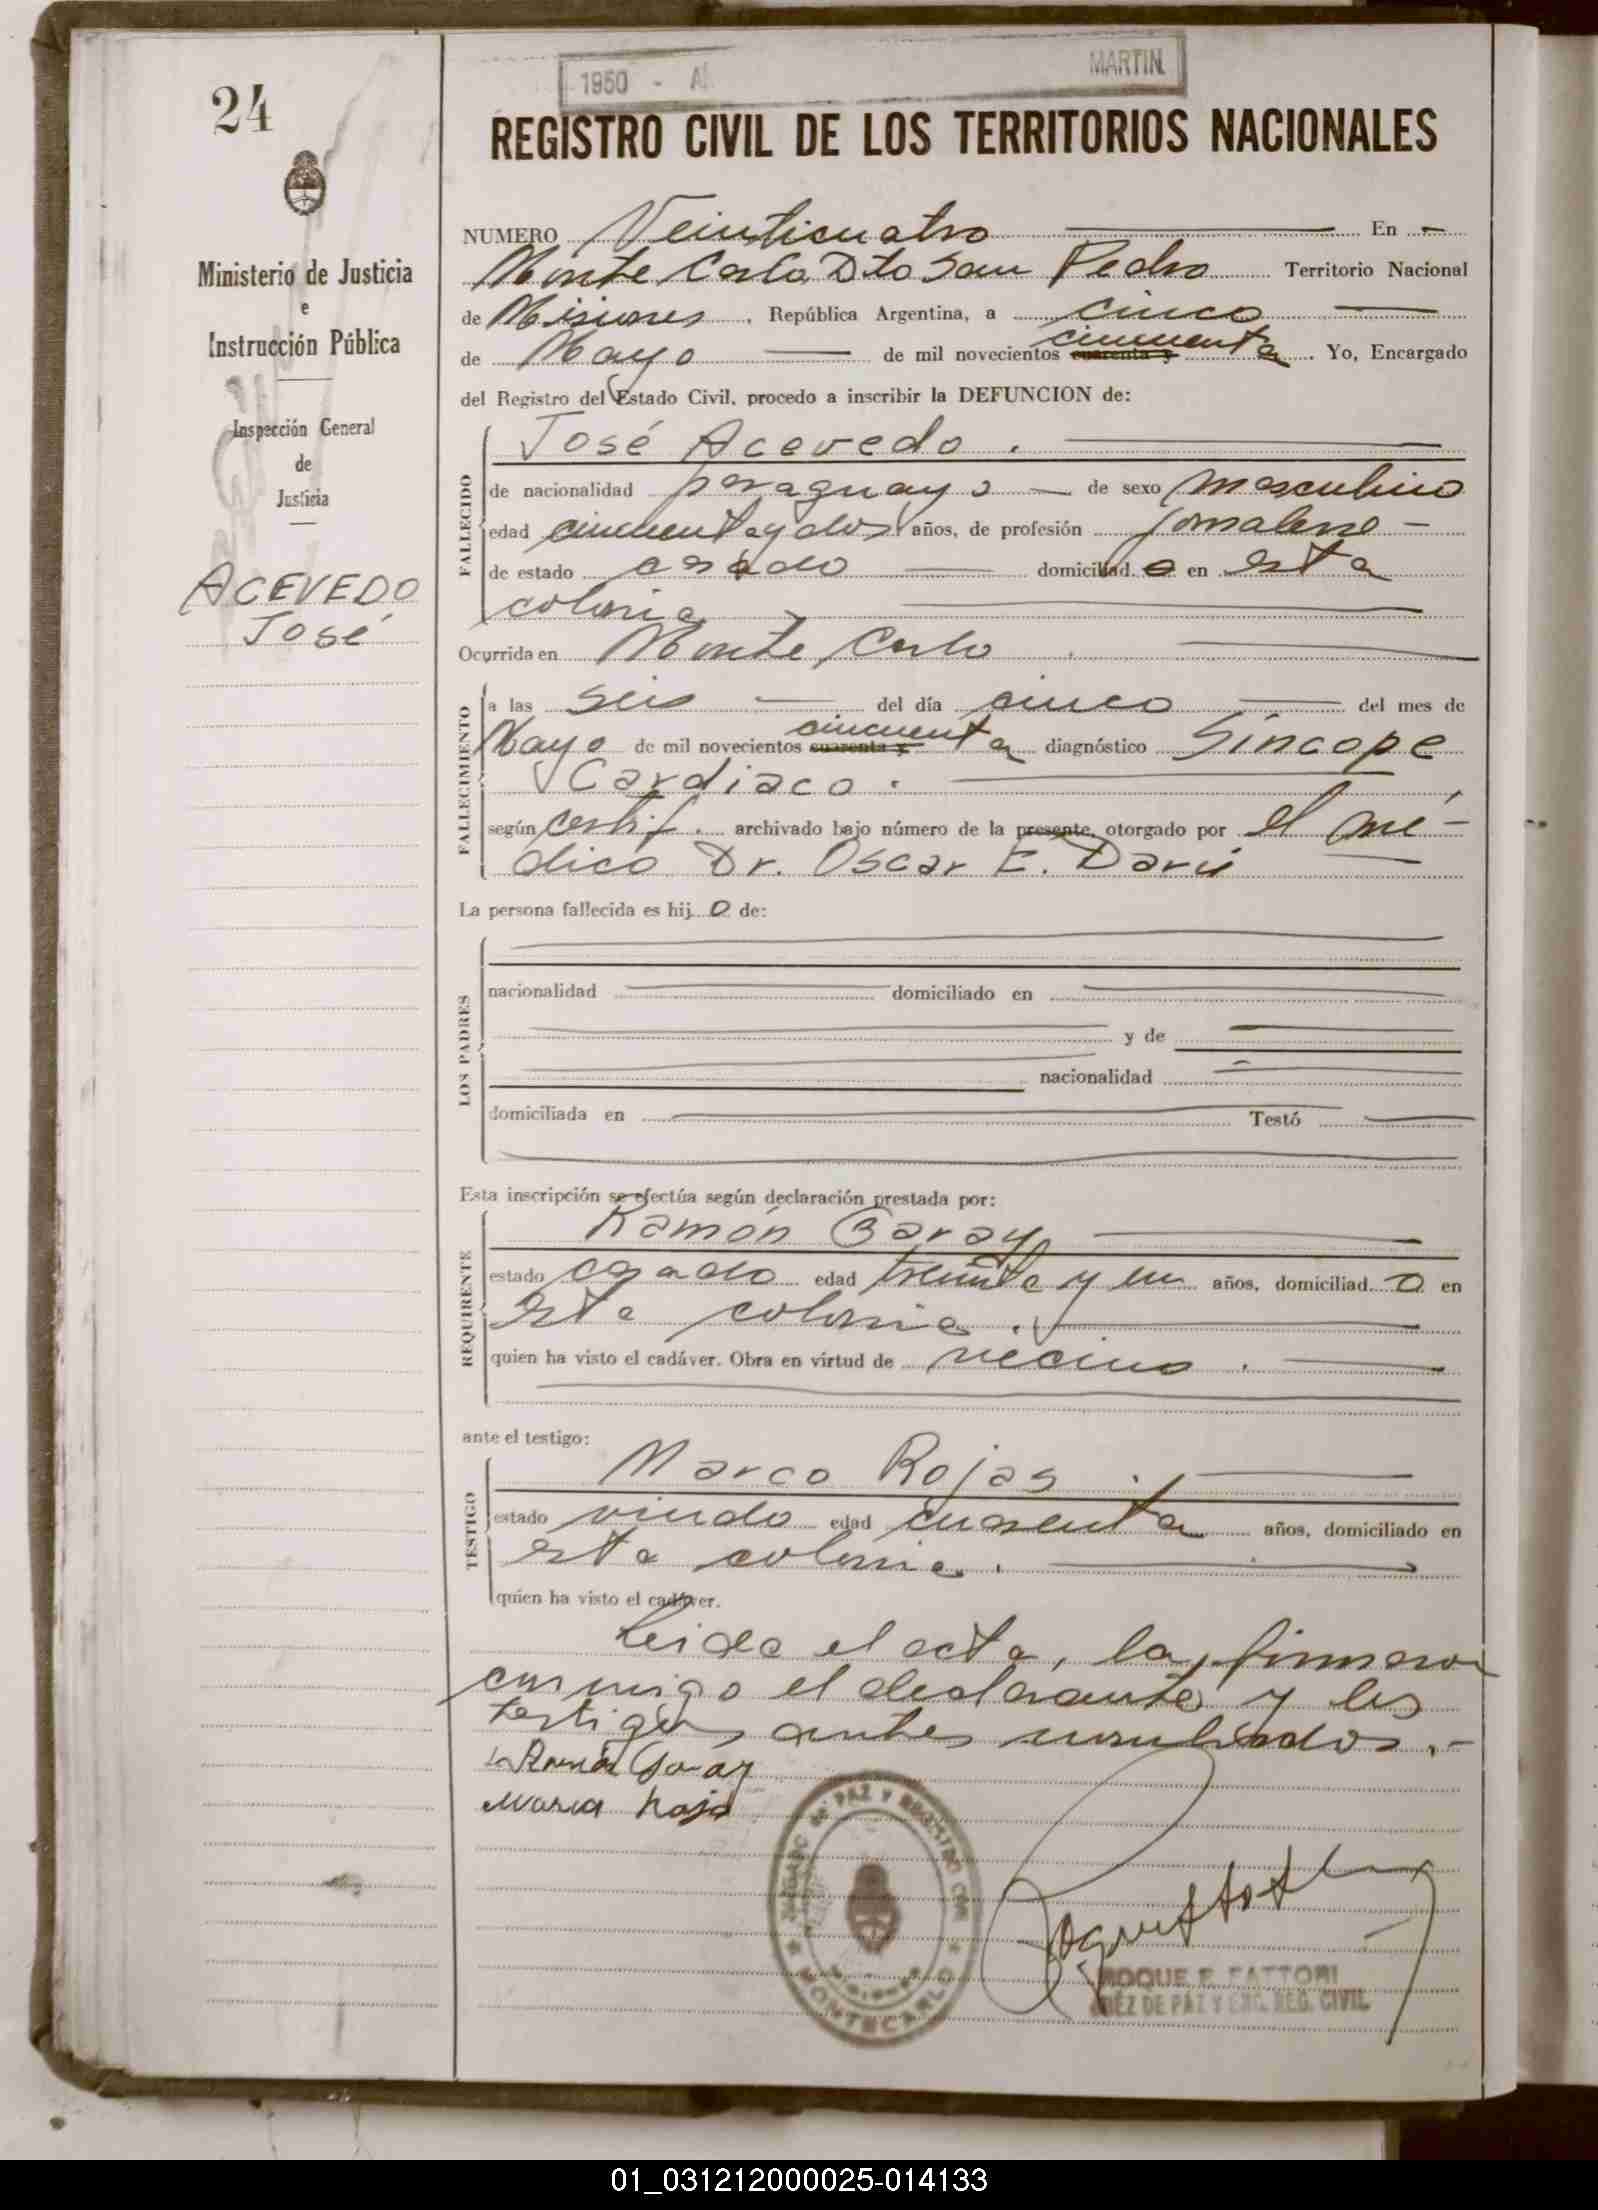 1950 - A MARTIN
24
REGISTRO CIVIL DE LOS TERRITORIOS NACIONALES
Ministerio de Justicia
e
Instrucción Pública
Inspección General
de
Justicia
ACEVEDO
José
NUMERO Veinticuatro En
Monte Carlo Dto San Pedro Territorio Nacional
de Misiones, República Argentina, a cinco
de Mayo de mil novecientos cuarenta y cincuenta. Yo, Encargado
del Registro del Estado Civil, procedo a inscribir la DEFUNCION de:
FALLECIDO
José Acevedo.
de nacionalidad paraguayo de sexo masculino
edad cincuenta y dos años, de profesión jornalero
de estado casado domiciliad o en esta
colonia
Ocurrida en Monte Carlo.
FALLECIMIENTO
a las seis del día cinco del mes de
Mayo de mil novecientos cuarenta y cincuenta diagnóstico Síncope
Cardiaco.
según certif. archivado bajo número de la presente, otorgado por el mé-
dico Dr. Oscar E. Darú
La persona fallecida es hij o de:
LOS PADRES
nacionalidad domiciliado en
y de
nacionalidad
domiciliada en Testó
Esta inscripción se efectúa según declaración prestada por:
REQUIRENTE
Ramón Garay
estado casado edad treinta y un años, domiciliad o en
esta colonia.
quien ha visto el cadáver. Obra en virtud de vecino.
ante el testigo:
TESTIGO
Marco Rojas.
estado viudo edad cuarenta años, domiciliado en
esta colonia.
quien ha visto el cadáver.
Leida el acta, la firmaron
conmigo el declarante y los
testigos antes nombrados.-
Ramón Garay
JUZGADO de PAZ Y REGISTRO CIVIL
MISIONES
MONTECARLO
ROQUE F. FATTORI
JUEZ DE PAZ Y ENC. REG. CIVIL
01_031212000025-014133